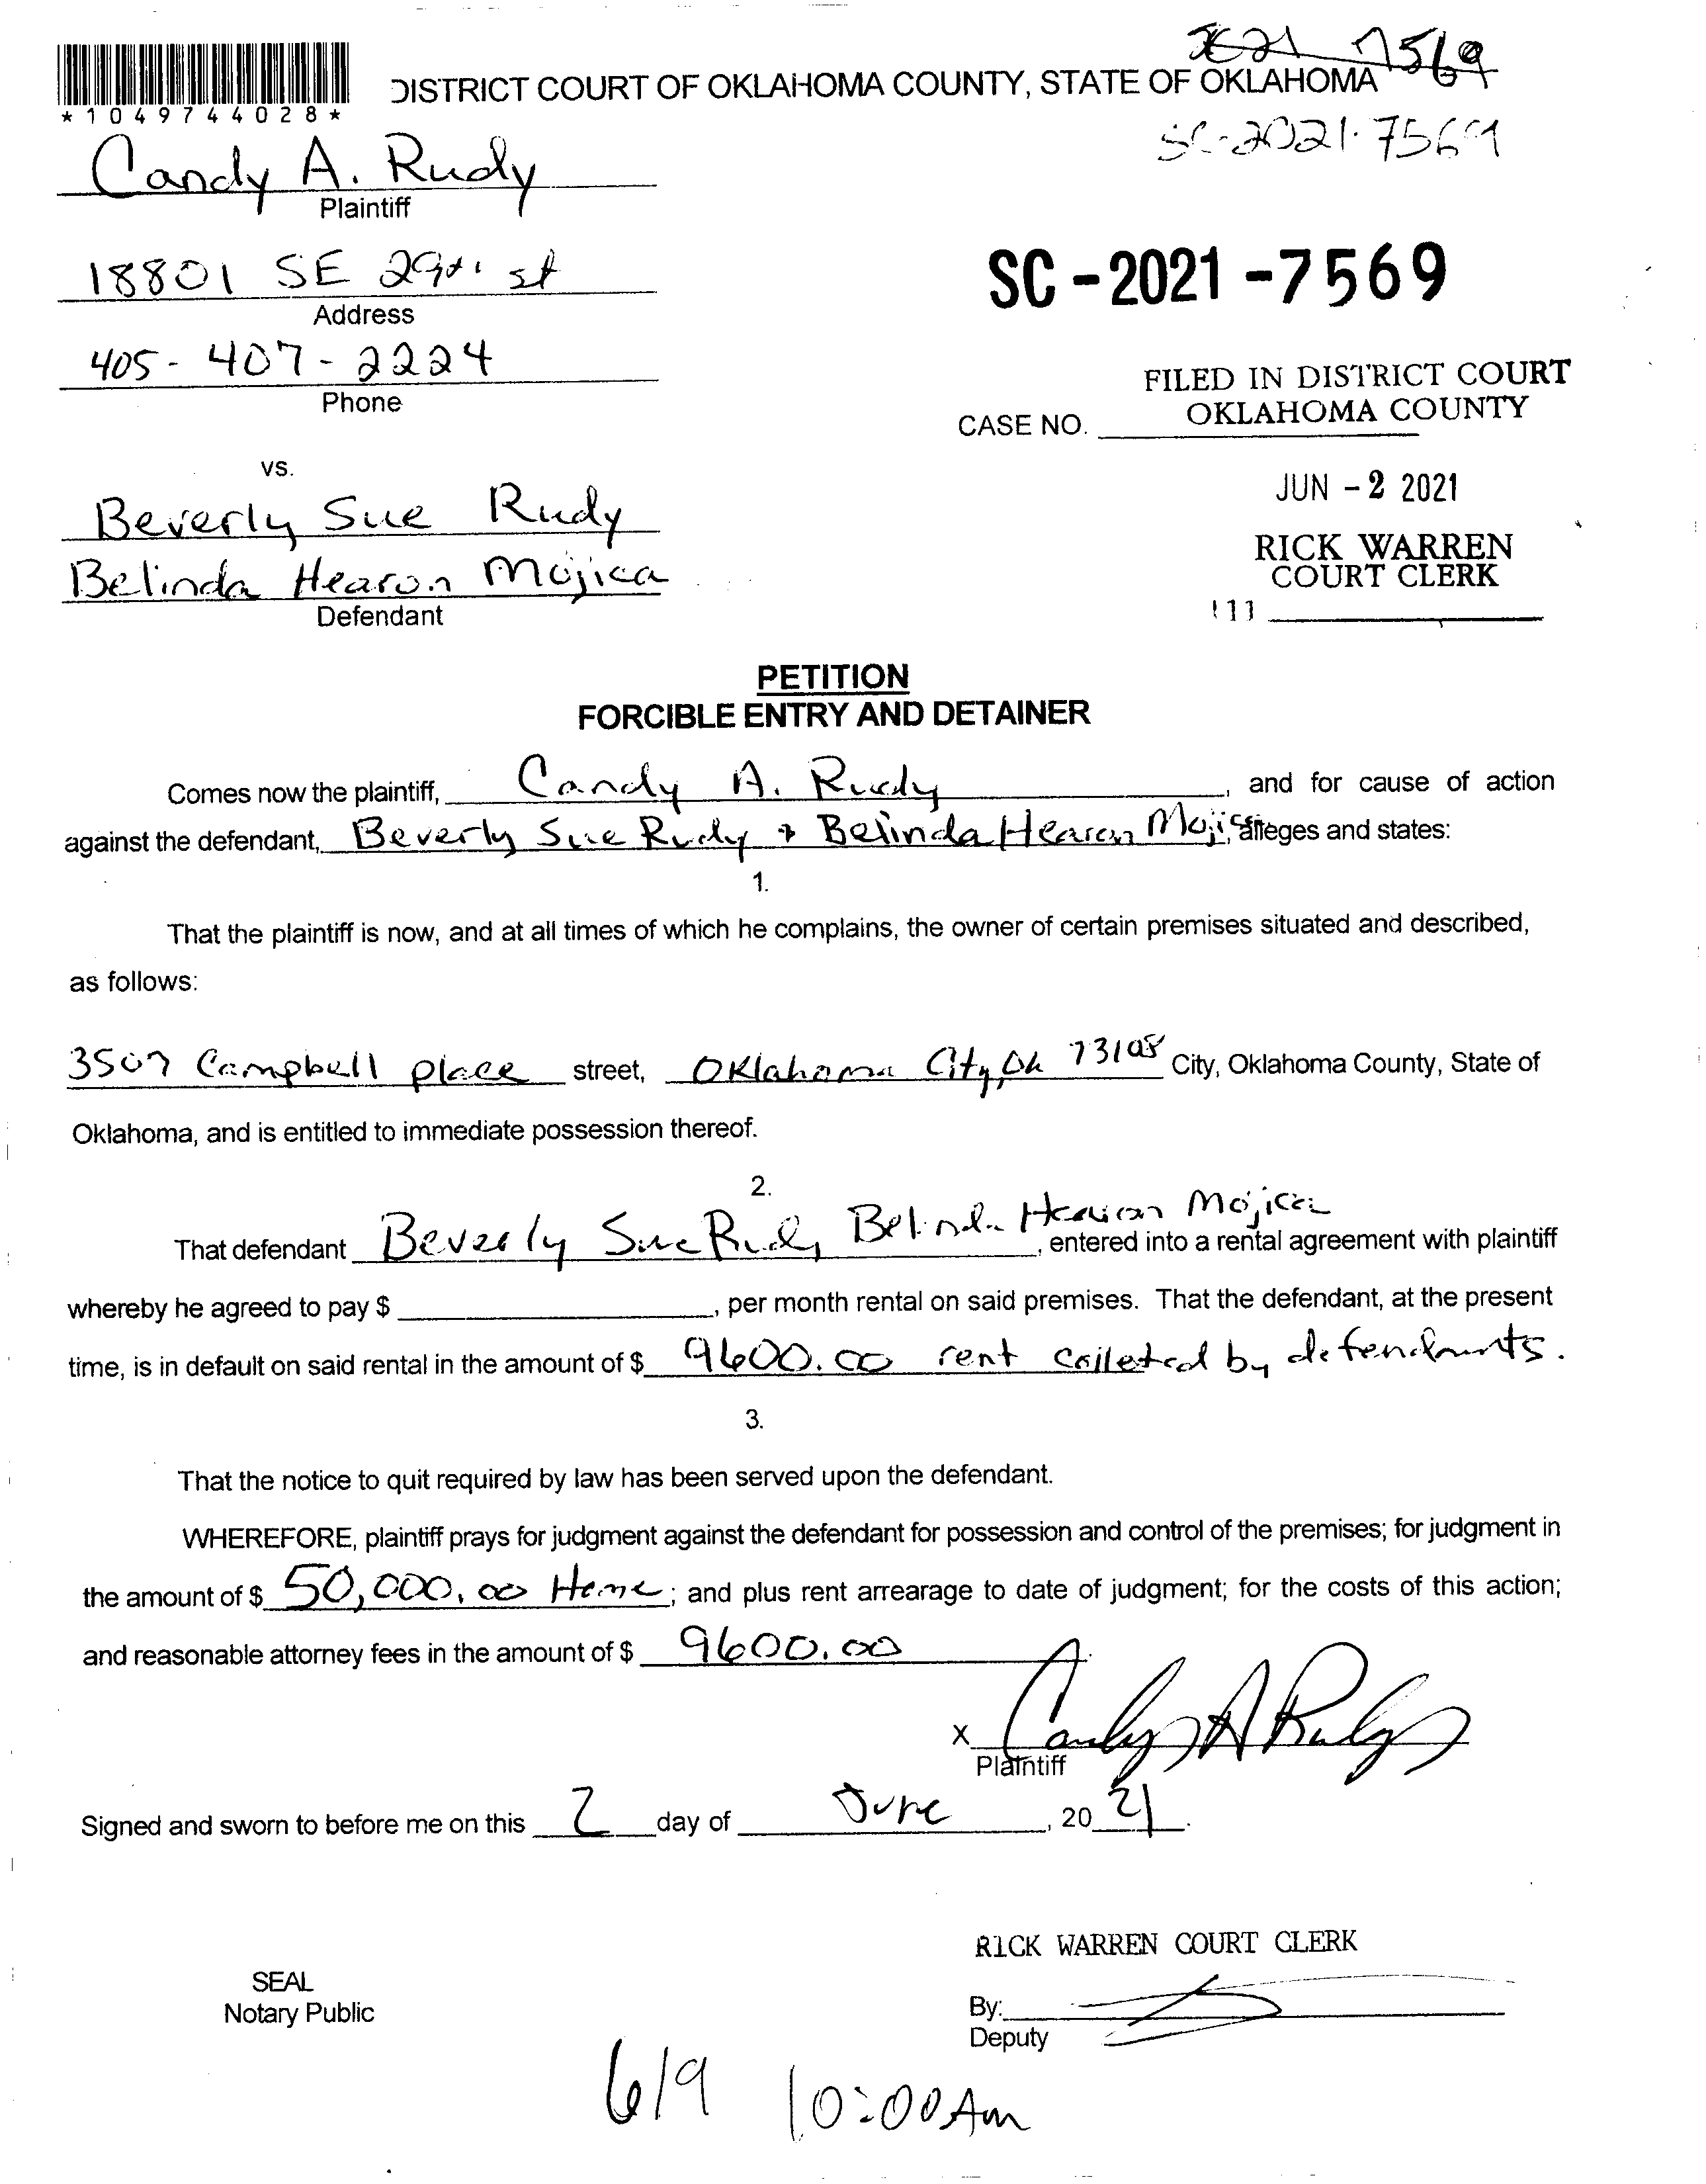 2021 7569
DISTRICT COURT OF OKLAHOMA COUNTY, STATE OF OKLAHOMA
*1049744028*
SC-2021-7569
Candy A. Rudy
Plaintiff
18801 SE 29th st
Address
SC-2021-7569
405-407-2224
Phone
FILED IN DISTRICT COURT
OKLAHOMA COUNTY
CASE NO.
vs.
JUN -2 2021
Beverly Sue Rudy
RICK WARREN
COURT CLERK
Belinda Hearon Mojica
Defendant
111
PETITION
FORCIBLE ENTRY AND DETAINER
Comes now the plaintiff, Candy A. Rudy, and for cause of action
against the defendant, Beverly Sue Rudy + Belinda Hearon Mojica, alleges and states:
1.
That the plaintiff is now, and at all times of which he complains, the owner of certain premises situated and described,
as follows:
3507 Campbell place street, Oklahoma City, Ok 73108 City, Oklahoma County, State of
Oklahoma, and is entitled to immediate possession thereof.
2.
That defendant Beverly Sue Rudy Belinda Hearon Mojica, entered into a rental agreement with plaintiff
whereby he agreed to pay $, per month rental on said premises. That the defendant, at the present
time, is in default on said rental in the amount of $ 9600.00 rent colleted by defendants.
3.
That the notice to quit required by law has been served upon the defendant.
WHEREFORE, plaintiff prays for judgment against the defendant for possession and control of the premises; for judgment in
the amount of $ 50,000.00 Home; and plus rent arrearage to date of judgment; for the costs of this action;
and reasonable attorney fees in the amount of $ 9600.00
X Candy A Rudy
Plaintiff
Signed and sworn to before me on this 2 day of June, 20 21.
RICK WARREN COURT CLERK
SEAL
Notary Public
By:
Deputy
6/9 10:00 Am